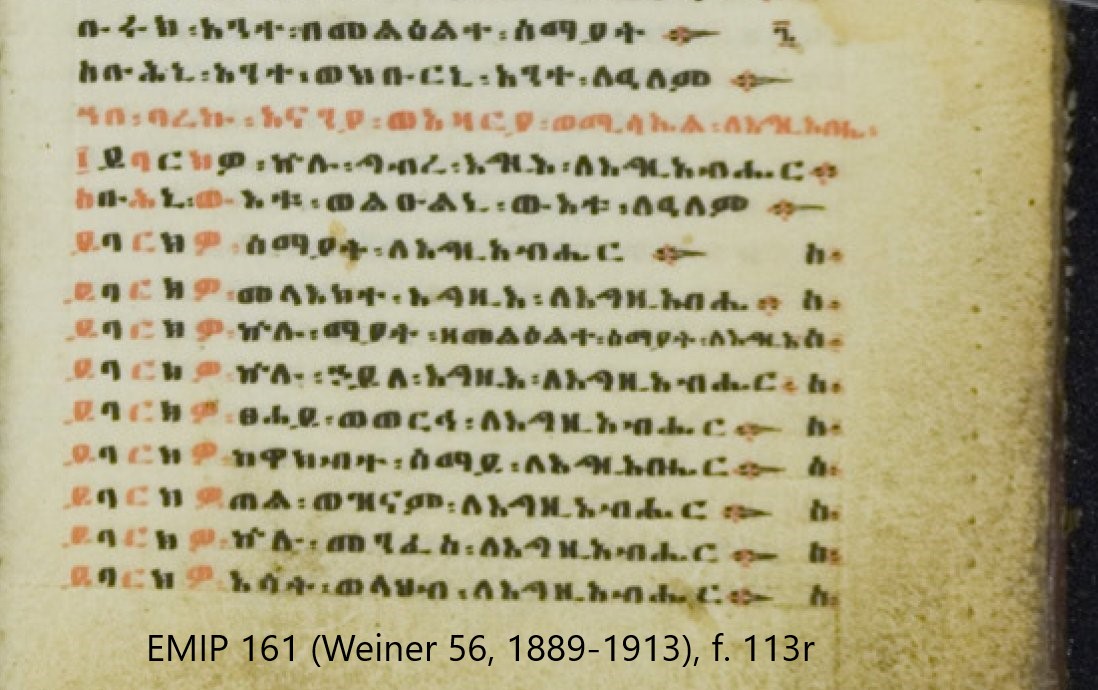 ቡሩክ ፡ አንተ ፡ በመልዕልተ ፡ ሰማያት ፲
ስቡሕኒ ፡ አንተ ፡ ወክቡርኒ ፡ አንተ ፡ ለዓለም
ይባርክዎ ፡ ኵሉ ፡ ግብረ ፡ እግዚእ ፡ ለእግዚአብሔር
ስቡሕኒ ፡ ውእቱ ፡ ወልዑልኒ ፡ ውእቱ ፡ ለዓለም
ይባርክዎ ፡ ሰማያት ፡ ለእግዚአብሔር ስ
ይባርክዎ ፡ መላእክተ ፡ እግዚእ ፡ ለእግዚአብሔ ስ
ይባርክዎ ፡ ኵሉ ፡ ማያት ፡ ዘመልዕልተ ፡ ሰማያት ፡ ለእግዚአ ስ
ይባርክዎ ፡ ኵሉ ፡ ኃይለ ፡ እግዚእ ፡ ለእግዚአብሔር ስ
ይባርክዎ ፡ ፀሐይ ፡ ወወርኅ ፡ ለእግዚአብሔር ስ
ይባርክዎ ፡ ከዋክብተ ፡ ሰማይ ፡ ለእግዚአብሔር ስ
ይባርክዎ ፡ ጠል ፡ ወዝናም ፡ ለእግዚአብሔር ስ
ይባርክዎ ፡ ኵሉ ፡ መንፈስ ፡ ለእግዚአብሔር ስ
ይባርክዎ ፡ እሳት ፡ ወላህብ ፡ ለእግዚአብሔር ስ
EMIP 161 (Weiner 56, 1889-1913), f. 113r